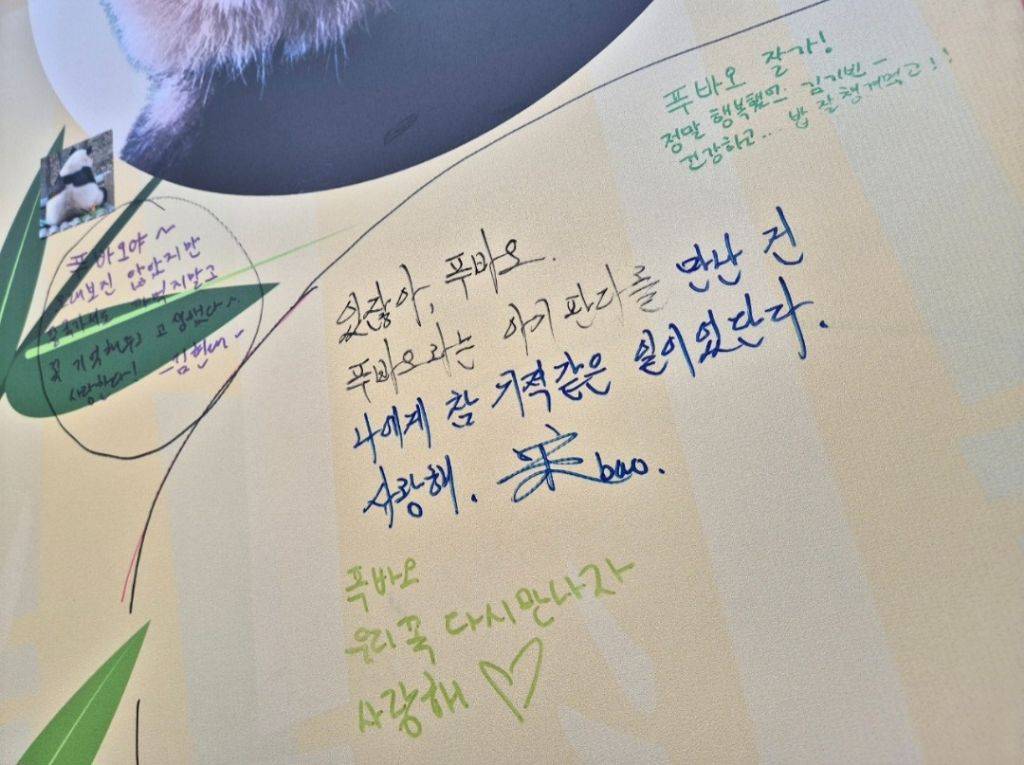 푸바오 잘가!
정말 행복했어 김기빈-
건강하고... 밥 잘챙겨먹고!!
푸바오야~
오래보진 않았지만
까먹지말고
꼭 기억해주고 고생했다~
사랑한다! -김현대-
있잖아, 푸바오.
푸바오라는 아기 판다를 만난 건
나에게 참 기적같은 일이었단다.
사랑해. 宋bao.
푹바오
우리꼭 다시만나자
사랑해 ♡